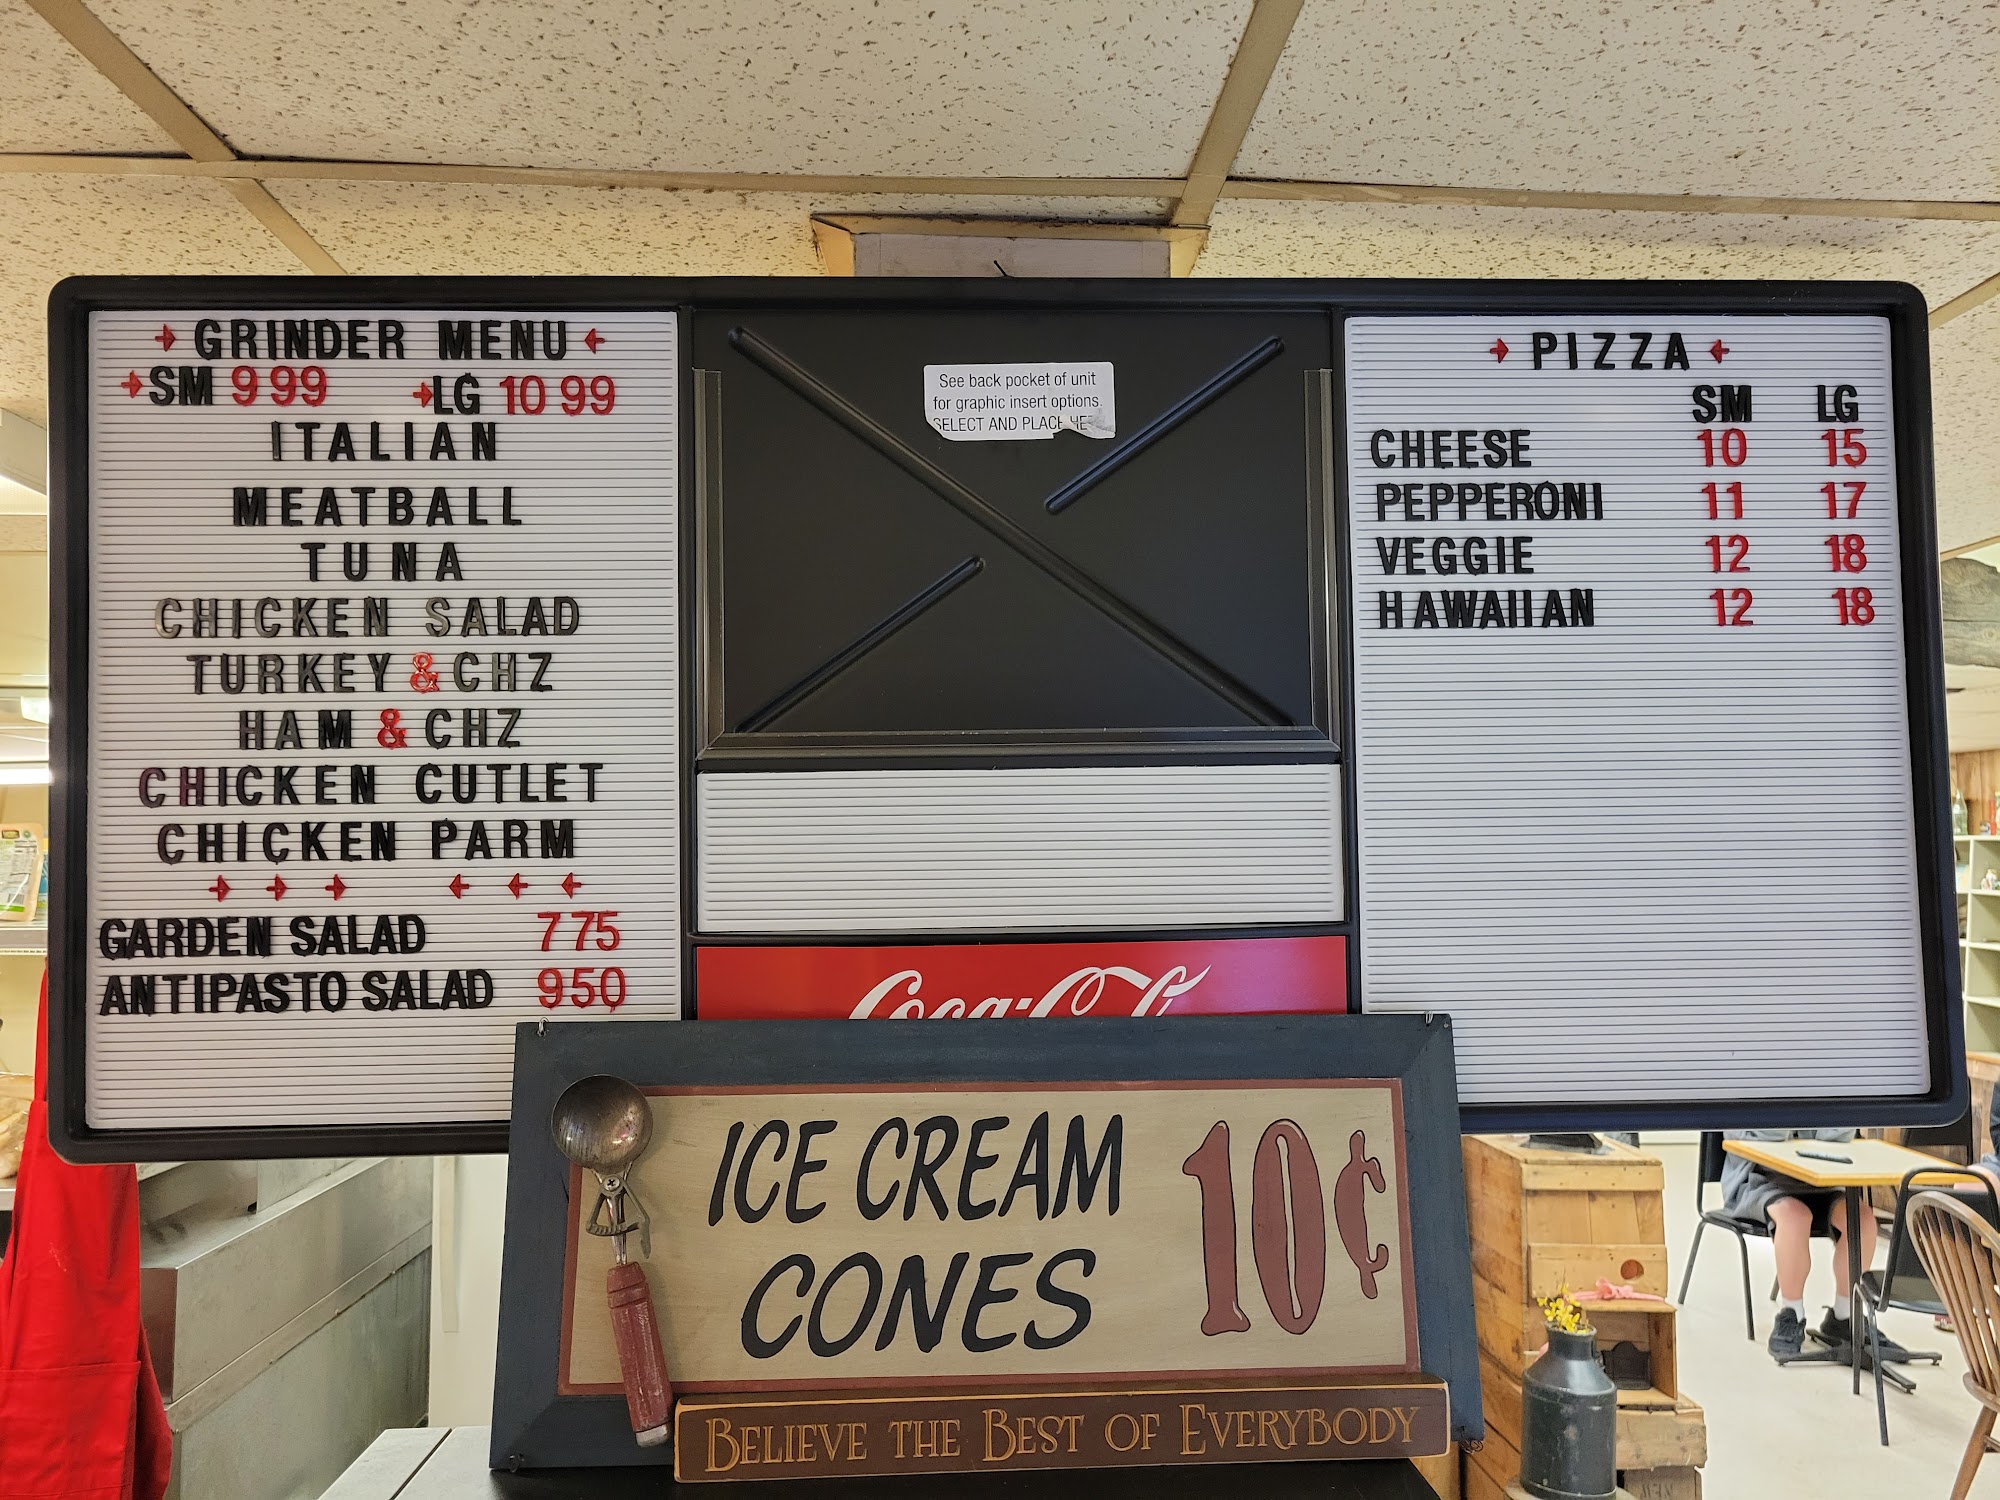 GRINDER MENU
SM 9 99 LG 10 99
ITALIAN
MEATBALL
TUNA
CHICKEN SALAD
TURKEY & CHZ
HAM & CHZ
CHICKEN CUTLET
CHICKEN PARM
GARDEN SALAD 7 75
ANTIPASTO SALAD 9 50
See back pocket of unit
for graphic insert options.
SELECT AND PLACE
Coca-Col
PIZZA
SM LG
CHEESE 10 15
PEPPERONI 11 17
VEGGIE 12 18
HAWAIIAN 12 18
ICE CREAM
CONES
10¢
BELIEVE THE BEST OF EVERYBODY